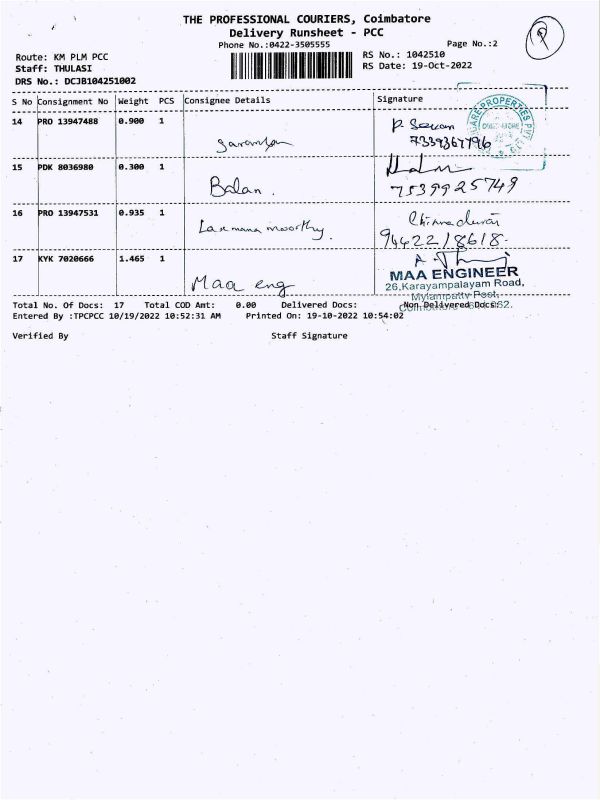 THE PROFESSIONAL COURIERS, Coimbatore
Delivery Runsheet - PCC
Phone No.:0422-3505555
Page No.:2
Route: KM PLM PCC
RS No.: 1042510
Staff: THULASI
RS Date: 19-Oct-2022
DRS No.: DCJB104251002
S No Consignment No Weight PCS Consignee Details Signature
14 PRO 13947488 0.900 1 P. Saran
7339367796
15 PDK 8036980 0.300 1 Balan.
7539925749
16 PRO 13947531 0.935 1 Laxmana moorthy. Chinnadurai
9442218618
17 KYK 7020666 1.465 1 Maa eng
MAA ENGINEER
26,Karayampalayam Road,
Mylampatty Post,
Total No. Of Docs: 17 Total COD Amt: 0.00 Delivered Docs: Non Delivered Docs:
Entered By :TPCPCC 10/19/2022 10:52:31 AM Printed On: 19-10-2022 10:54:02
Verified By Staff Signature